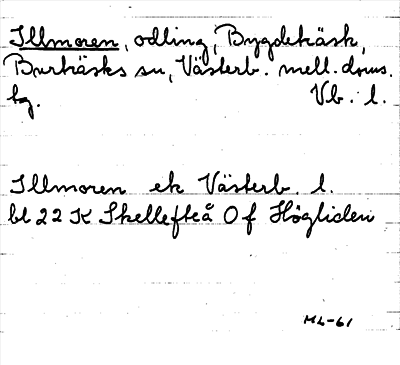 Illmoren, odling, Bygdeträsk,
Burträsks sn, Västerb. mell. doms.
hg. Vb. l.
Illmoren ek Västerb. l.
bl 22 K Skellefteå 0 f Högliden
ML-61